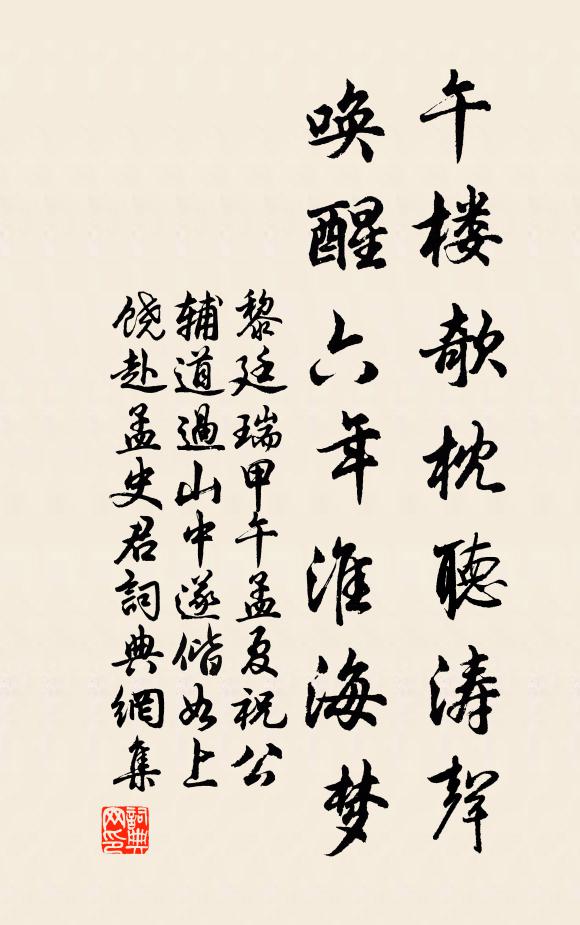 午楼欹枕聽涛聲
唤醒六年淮海梦
黎廷瑞甲午孟夏祝公
辅道過山中遂偕如上
饶赴孟史君詞典網集
詞典
网印